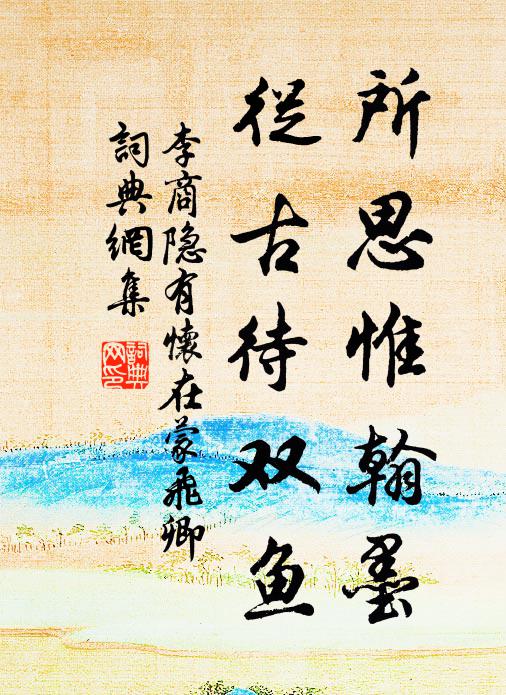 所思惟翰墨
從古待双鱼
李商隐有懷在蒙飛卿
詞典網集
詞典网印